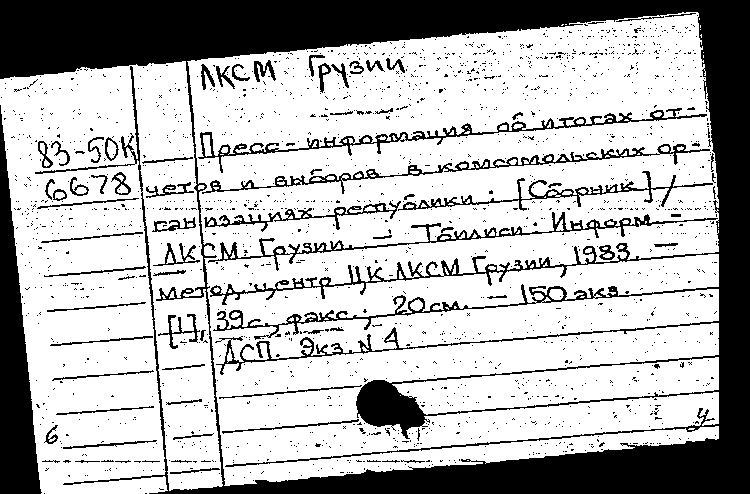 ЛКСМ Грузии
83-50К
6678
Пресс-информация об итогах от-
четов и выборов в комсомольских ор-
ганизациях республики: [Сборник] /
ЛКСМ Грузии. - Тбилиси: Информ.-
метод. центр ЦК ЛКСМ Грузии, 1983. -
[1], 39с., факс.; 20см. - 150 экз.
ДСП. Экз. N 4.
6
У